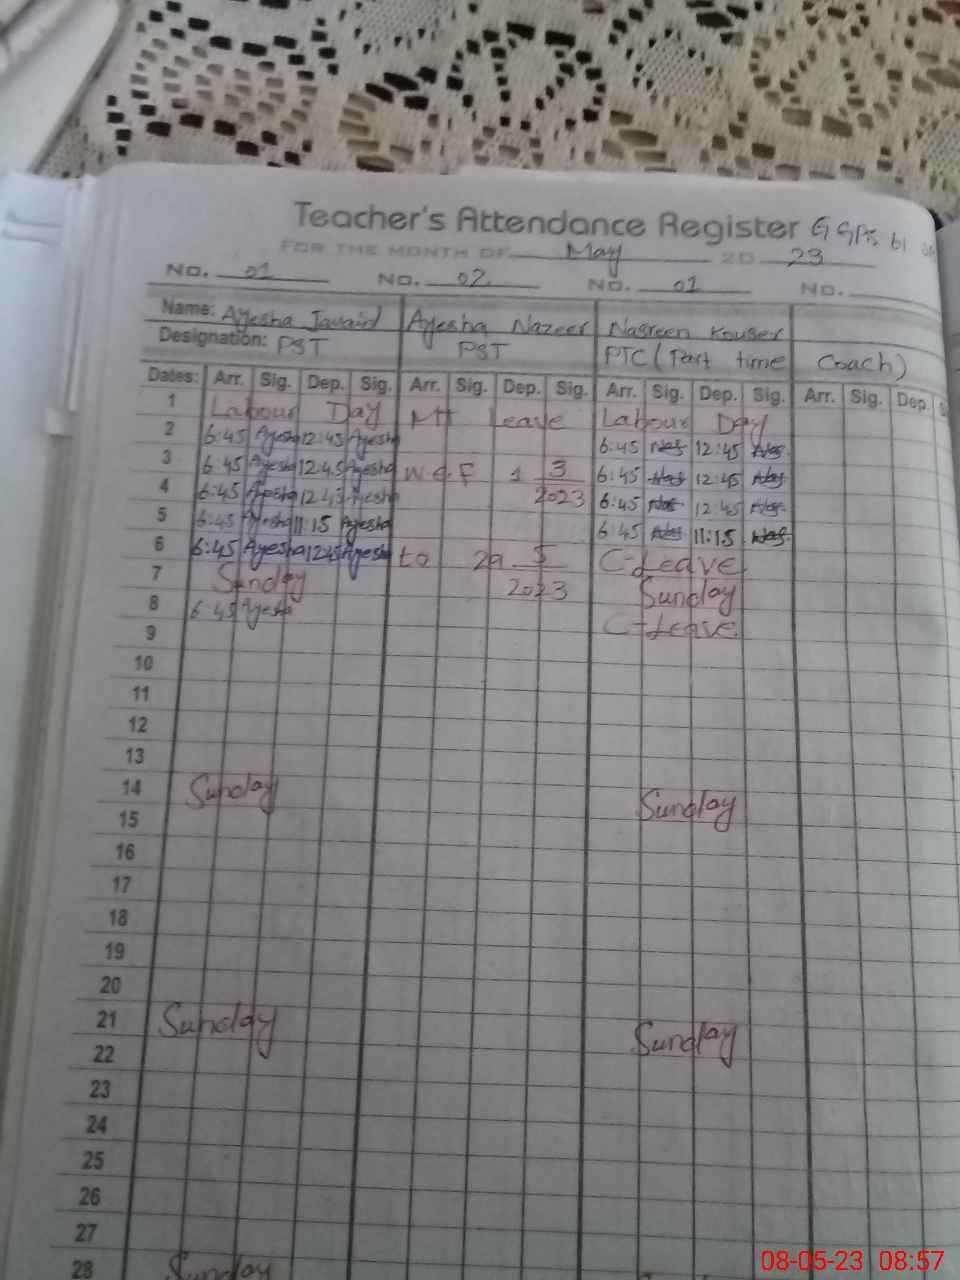 Teacher's Attendance Register GGPS
FOR THE MONTH OF May 20 23
No. 01 No. 02 No. 01 No.
Name: Ayesha Javaid Ayesha Nazeer Nasreen Kouser
Designation: PST PST PTC (Part time Coach)
Dates: Arr. Sig. Dep. Sig. Arr. Sig. Dep. Sig. Arr. Sig. Dep. Sig. Arr. Sig. Dep.
1 Labour Day Mt Leave Labour Day
2 6:45 Ayesha 12:45 Ayesha 6:45 Nas 12:45 Nas
3 6:45 Ayesha 12:45 Ayesha w.e.f 1 3 6:45 Nas 12:45 Nas
4 6:45 Ayesha 12:45 Ayesha 2023 6:45 Nas 12:45 Nas
5 6:45 Ayesha 11:15 Ayesha 6:45 Nas 11:15 Nas
6 6:45 Ayesha 12:45 Ayesha to 29 5 C-Leave
7 Sunday 2023 Sunday
8 6:45 Ayesha C-Leave
9
10
11
12
13
14 Sunday Sunday
15
16
17
18
19
20
21 Sunday Sunday
22
23
24
25
26
27
28 Sunday
08-05-23 08:57